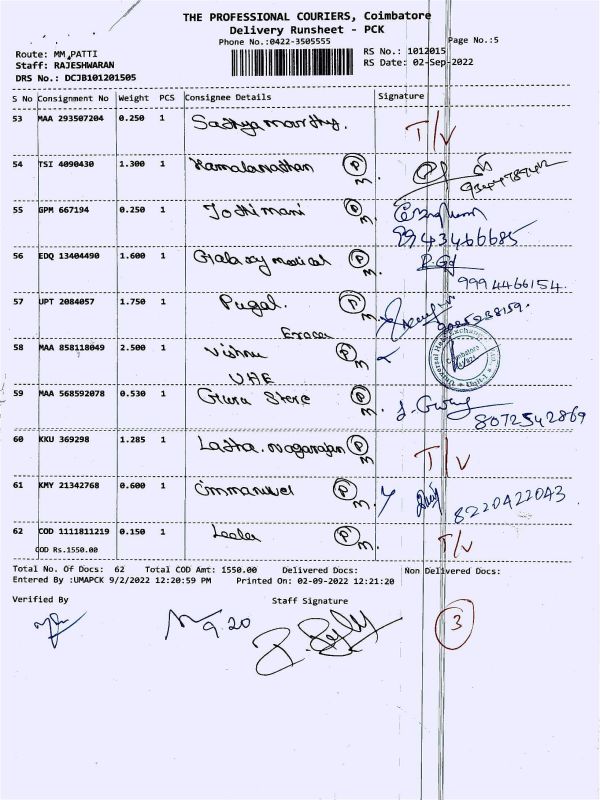 THE PROFESSIONAL COURIERS, Coimbatore
Delivery Runsheet - PCK
Phone No.:0422-3505555
Page No.:5
Route: MM PATTI
RS No.: 1012015
Staff: RAJESHWARAN
RS Date: 02-Sep-2022
DRS No.: DCJB101201505
S No Consignment No Weight PCS Consignee Details Signature
53 MAA 293507204 0.250 1 Sathya moorthy. T/V
54 TSI 4090430 1.300 1 Kamalanathan P M.
55 GPM 667194 0.250 1 Jothi mani P M.
99434 66685
56 EDQ 13404490 1.600 1 Galaxy medical P M.
9994466154.
57 UPT 2084057 1.750 1 Pugal. P M.
58 MAA 858118049 2.500 1 Vishnu P M.
UAE
59 MAA 568592078 0.530 1 Guru Store P M.
8072542869
60 KKU 369298 1.285 1 Latha. nagarajan P M T/V
61 KMY 21342768 0.600 1 immanuvel P M.
8220422043
62 COD 1111811219 0.150 1 Leela P M. T/V
COD Rs.1550.00
Total No. Of Docs: 62 Total COD Amt: 1550.00 Delivered Docs: Non Delivered Docs:
Entered By :UMAPCK 9/2/2022 12:20:59 PM Printed On: 02-09-2022 12:21:20
Verified By Staff Signature
9.20
3